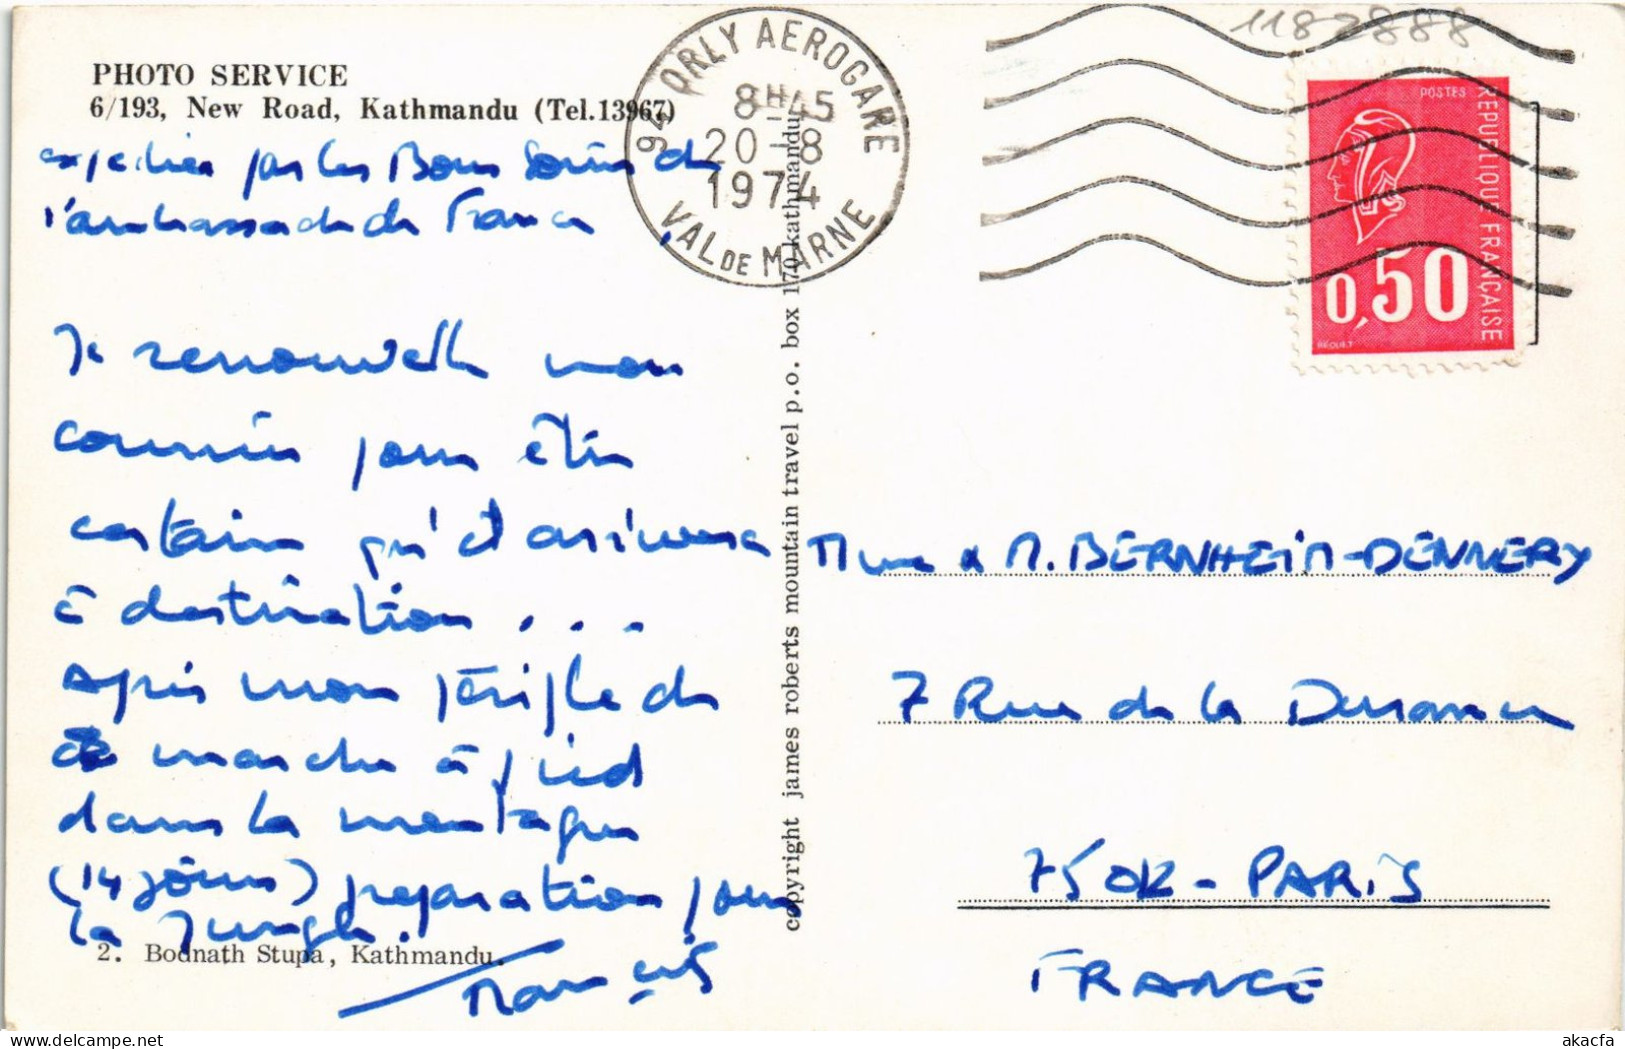 PHOTO SERVICE
6/193, New Road, Kathmandu (Tel.13967)
expédiée par les Bons Soins de
l'ambassade de France
Je renouvelle mon
courrier pour être
certain qu'il arrivera
à destination . . .
après mon périple de
marche à pied
dans la montagne
(14 jours) préparation pour
la Jungle.
2. Bodnath Stupa, Kathmandu.
François
copyright james roberts mountain travel p.o. box 170 kathmandu
94 ORLY AEROGARE
8H45
20-8
1974
VAL DE MARNE
1182888
POSTES
REPUBLIQUE FRANÇAISE
0,50
BEQUET
Mme & M. BERNHEIM-DENNERY
7 Rue de la Durance
75012 - PARIS
FRANCE
akacfa